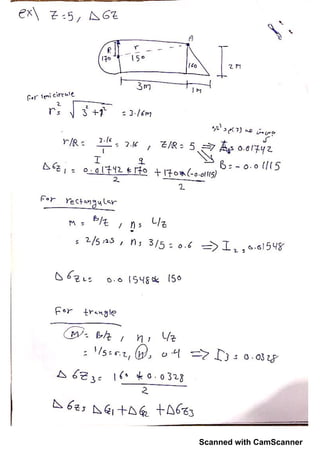 ex\ Z=5, Δσz
A
R
170
r
150
160
2M
3m
1M
For semicircle
r = √3²+1² = 3.16m
r/R = 3.16/1 = 3.16, Z/R = 5 ⇒ A = 0.01742
B = -0.01115
Δσz1 = 0.01742*170/2 + 170*(-0.01115)/2
For rectangular
M = B/Z, n = L/Z
= 2/5, n = 3/5 = 0.6 ⇒ I2 = 0.01548
Δσz2 = 0.01548* 150
For triangle
M = B/Z, n, L/Z
= 1/5 = 0.2, n, 0.4 ⇒ I3 = 0.0328
Δσz3 = 160*0.0328/2
Δσz = Δσ1+Δσ2+Δσz3
Scanned with CamScanner